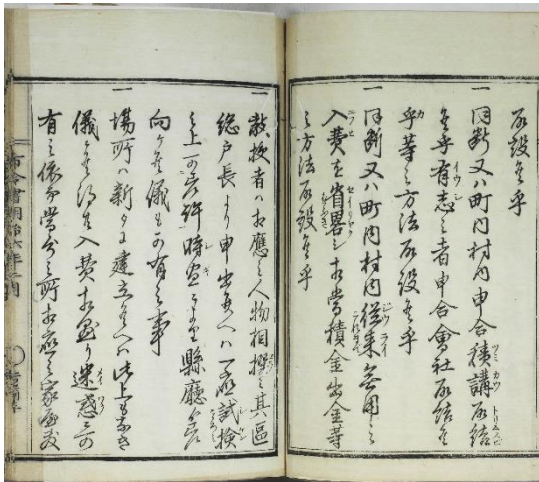 取設候乎
一 同断又ハ町内村内申合積講取結
候乎有志之者申合會社取結候
乎等之方法取設候乎
一 同断又ハ町内村内従来無用之
入費を省畧シ相當積金出金等
之方法取設候乎
一 教授者ハ相應之人物相撰ミ其區
総戸長より申出候ヘハ一應試検
之上可差許時宜により縣廳より差
向ケ候儀も可有之事
一 場所ハ新タニ建立候ヘハ此上もなき
儀ニ候得共入費相嵩り迷惑可
有之依而當分之所相應之家屋或